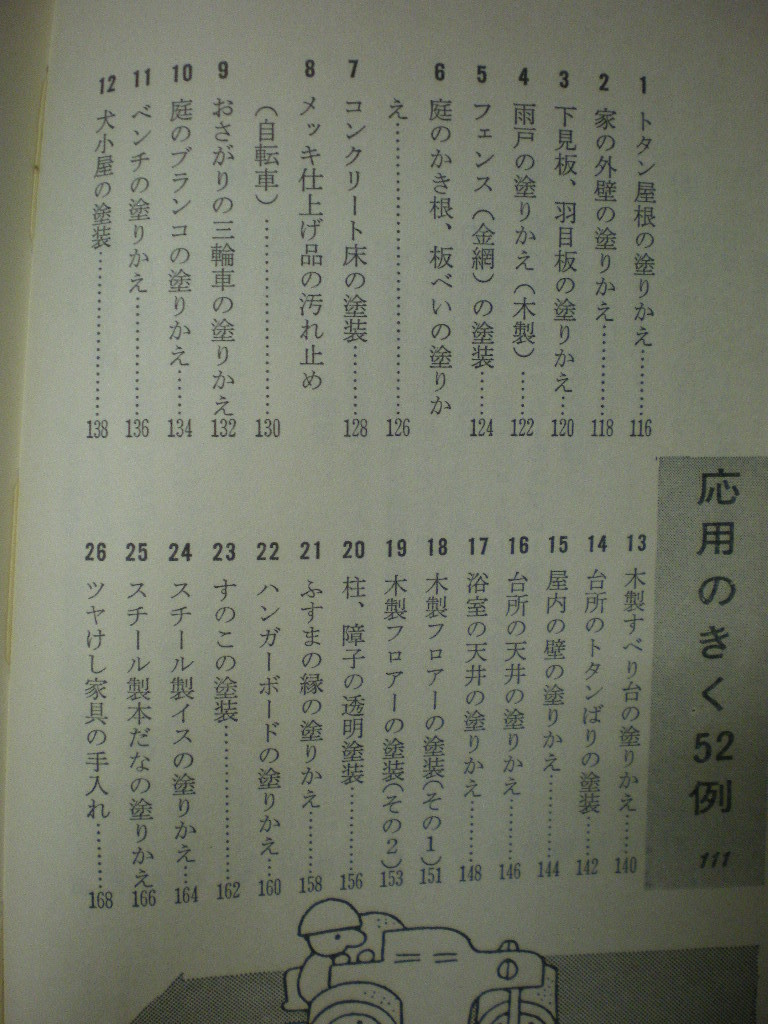 応用のきく52例 111
1 トタン屋根の塗りかえ………116
2 家の外壁の塗りかえ………118
3 下見板、羽目板の塗りかえ…120
4 雨戸の塗りかえ(木製)……122
5 フェンス(金網)の塗装……124
6 庭のかき根、板べいの塗りか
え…………………………126
7 コンクリート床の塗装………128
8 メッキ仕上げ品の汚れ止め
(自転車)…………………130
9 おさがりの三輪車の塗りかえ132
10 庭のブランコの塗りかえ……134
11 ベンチの塗りかえ…………136
12 犬小屋の塗装………………138
13 木製すべり台の塗りかえ……140
14 台所のトタンばりの塗装……142
15 屋内の壁の塗りかえ………144
16 台所の天井の塗りかえ………146
17 浴室の天井の塗りかえ………148
18 木製フロアーの塗装(その1)151
19 木製フロアーの塗装(その2)153
20 柱、障子の透明塗装…………156
21 ふすまの縁の塗りかえ………158
22 ハンガーボードの塗りかえ…160
23 すのこの塗装………………162
24 スチール製イスの塗りかえ…164
25 スチール製本だなの塗りかえ166
26 ツヤけし家具の手入れ………168